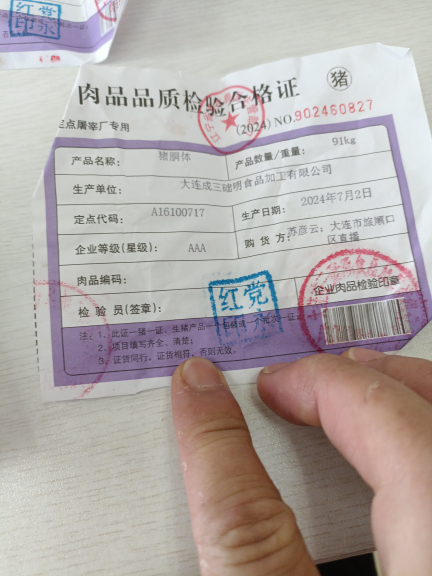 肉品品质检验合格证 猪
定点屠宰厂专用 (2024) NO.902460827
产品名称: 猪胴体 产品数量/重量: 91kg
生产单位: 大连成三础明食品加工有限公司
定点代码: A16100717 生产日期: 2024年7月2日
企业等级(星级): AAA 购货方: 苏彦云;大连市旅顺口
区直播
肉品编码: 企业肉品检验印章
检验员(签章): 红党
注:1、此证一猪一证,生猪产品一
2、项目填写齐全、清楚;
3、证货同行,证货相符,否则无效。